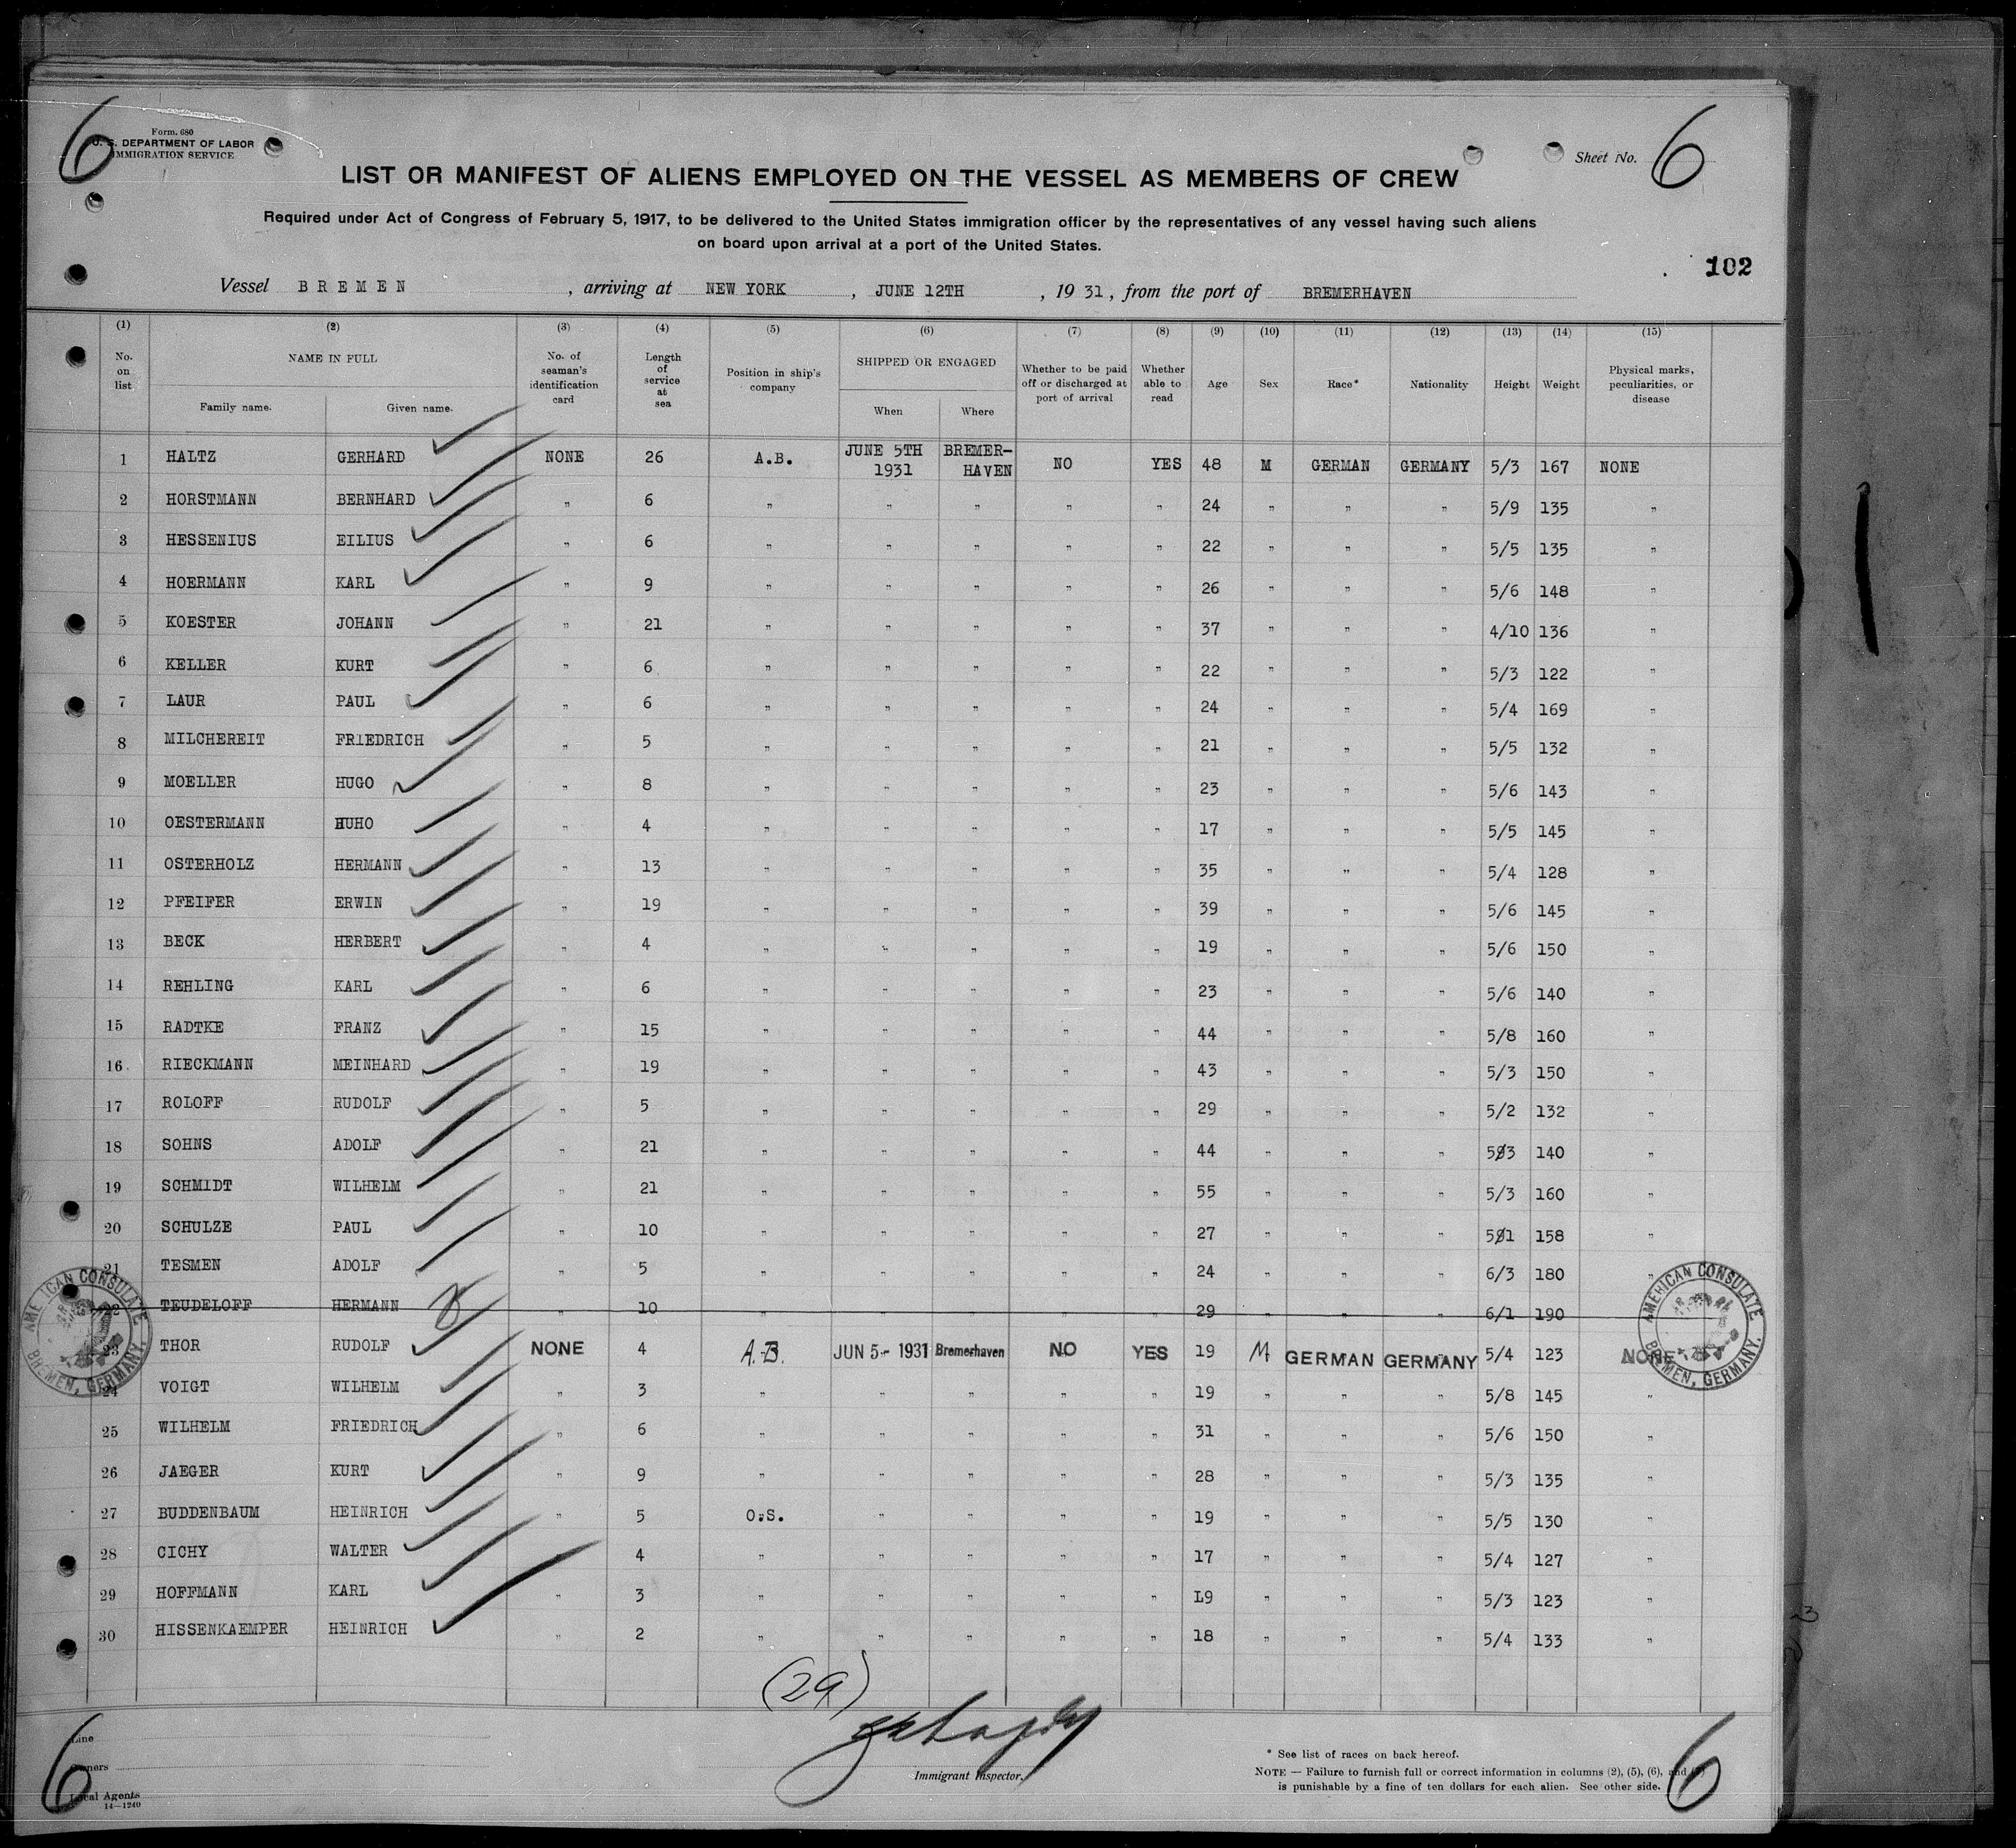 6
6
Form. 680
U. S. DEPARTMENT OF LABOR
IMMIGRATION SERVICE
Sheet No.
LIST OR MANIFEST OF ALIENS EMPLOYED ON THE VESSEL AS MEMBERS OF CREW
Required under Act of Congress of February 5, 1917, to be delivered to the United States immigration officer by the representatives of any vessel having such aliens
on board upon arrival at a port of the United States.
102
Vessel BREMEN, arriving at NEW YORK, JUNE 12TH, 1931, from the port of BREMERHAVEN
(1) (2) (3) (4) (5) (6) (7) (8) (9) (10) (11) (12) (13) (14) (15)
No. on list NAME IN FULL Family name. Given name. No. of seaman's identification card Length of service at sea Position in ship's company SHIPPED OR ENGAGED When Where Whether to be paid off or discharged at port of arrival Whether able to read Age Sex Race* Nationality Height Weight Physical marks, peculiarities, or disease
1 HALTZ GERHARD NONE 26 A.B. JUNE 5TH 1931 BREMER-HAVEN NO YES 48 M GERMAN GERMANY 5/3 167 NONE
2 HORSTMANN BERNHARD " 6 " " " " " 24 " " " 5/9 135 "
3 HESSENIUS EILIUS " 6 " " " " " 22 " " " 5/5 135 "
4 HOERMANN KARL " 9 " " " " " 26 " " " 5/6 148 "
5 KOESTER JOHANN " 21 " " " " " 37 " " " 4/10 136 "
6 KELLER KURT " 6 " " " " " 22 " " " 5/3 122 "
7 LAUR PAUL " 6 " " " " " 24 " " " 5/4 169 "
8 MILCHEREIT FRIEDRICH " 5 " " " " " 21 " " " 5/5 132 "
9 MOELLER HUGO " 8 " " " " " 23 " " " 5/6 143 "
10 OESTERMANN HUHO " 4 " " " " " 17 " " " 5/5 145 "
11 OSTERHOLZ HERMANN " 13 " " " " " 35 " " " 5/4 128 "
12 PFEIFER ERWIN " 19 " " " " " 39 " " " 5/6 145 "
13 BECK HERBERT " 4 " " " " " 19 " " " 5/6 150 "
14 REHLING KARL " 6 " " " " " 23 " " " 5/6 140 "
15 RADTKE FRANZ " 15 " " " " " 44 " " " 5/8 160 "
16 RIECKMANN MEINHARD " 19 " " " " " 43 " " " 5/3 150 "
17 ROLOFF RUDOLF " 5 " " " " " 29 " " " 5/2 132 "
18 SOHNS ADOLF " 21 " " " " " 44 " " " 5/3 140 "
19 SCHMIDT WILHELM " 21 " " " " " 55 " " " 5/3 160 "
20 SCHULZE PAUL " 10 " " " " " 27 " " " 5/1 158 "
21 TESMEN ADOLF " 5 " " " " " 24 " " " 6/3 180 "
22 TEUDELOFF HERMANN " 10 " " " " " 29 " " " 6/1 190
23 THOR RUDOLF NONE 4 A.B. JUN 5- 1931 Bremerhaven NO YES 19 M GERMAN GERMANY 5/4 123 NONE
24 VOIGT WILHELM " 3 " " " " " 19 " " " 5/8 145 "
25 WILHELM FRIEDRICH " 6 " " " " " 31 " " " 5/6 150 "
26 JAEGER KURT " 9 " " " " " 28 " " " 5/3 135 "
27 BUDDENBAUM HEINRICH " 5 O.S. " " " " 19 " " " 5/5 130 "
28 CICHY WALTER " 4 " " " " " 17 " " " 5/4 127 "
29 HOFFMANN KARL " 3 " " " " " L9 " " " 5/3 123 "
30 HISSENKAEMPER HEINRICH " 2 " " " " " 18 " " " 5/4 133 "
AMERICAN CONSULATE
BREMEN, GERMANY.
AMERICAN CONSULATE
BREMEN, GERMANY.
(29)
Line
Owners
Local Agents
14—1240
6
Immigrant Inspector.
* See list of races on back hereof.
NOTE — Failure to furnish full or correct information in columns (2), (5), (6), and (7)
is punishable by a fine of ten dollars for each alien. See other side.
6